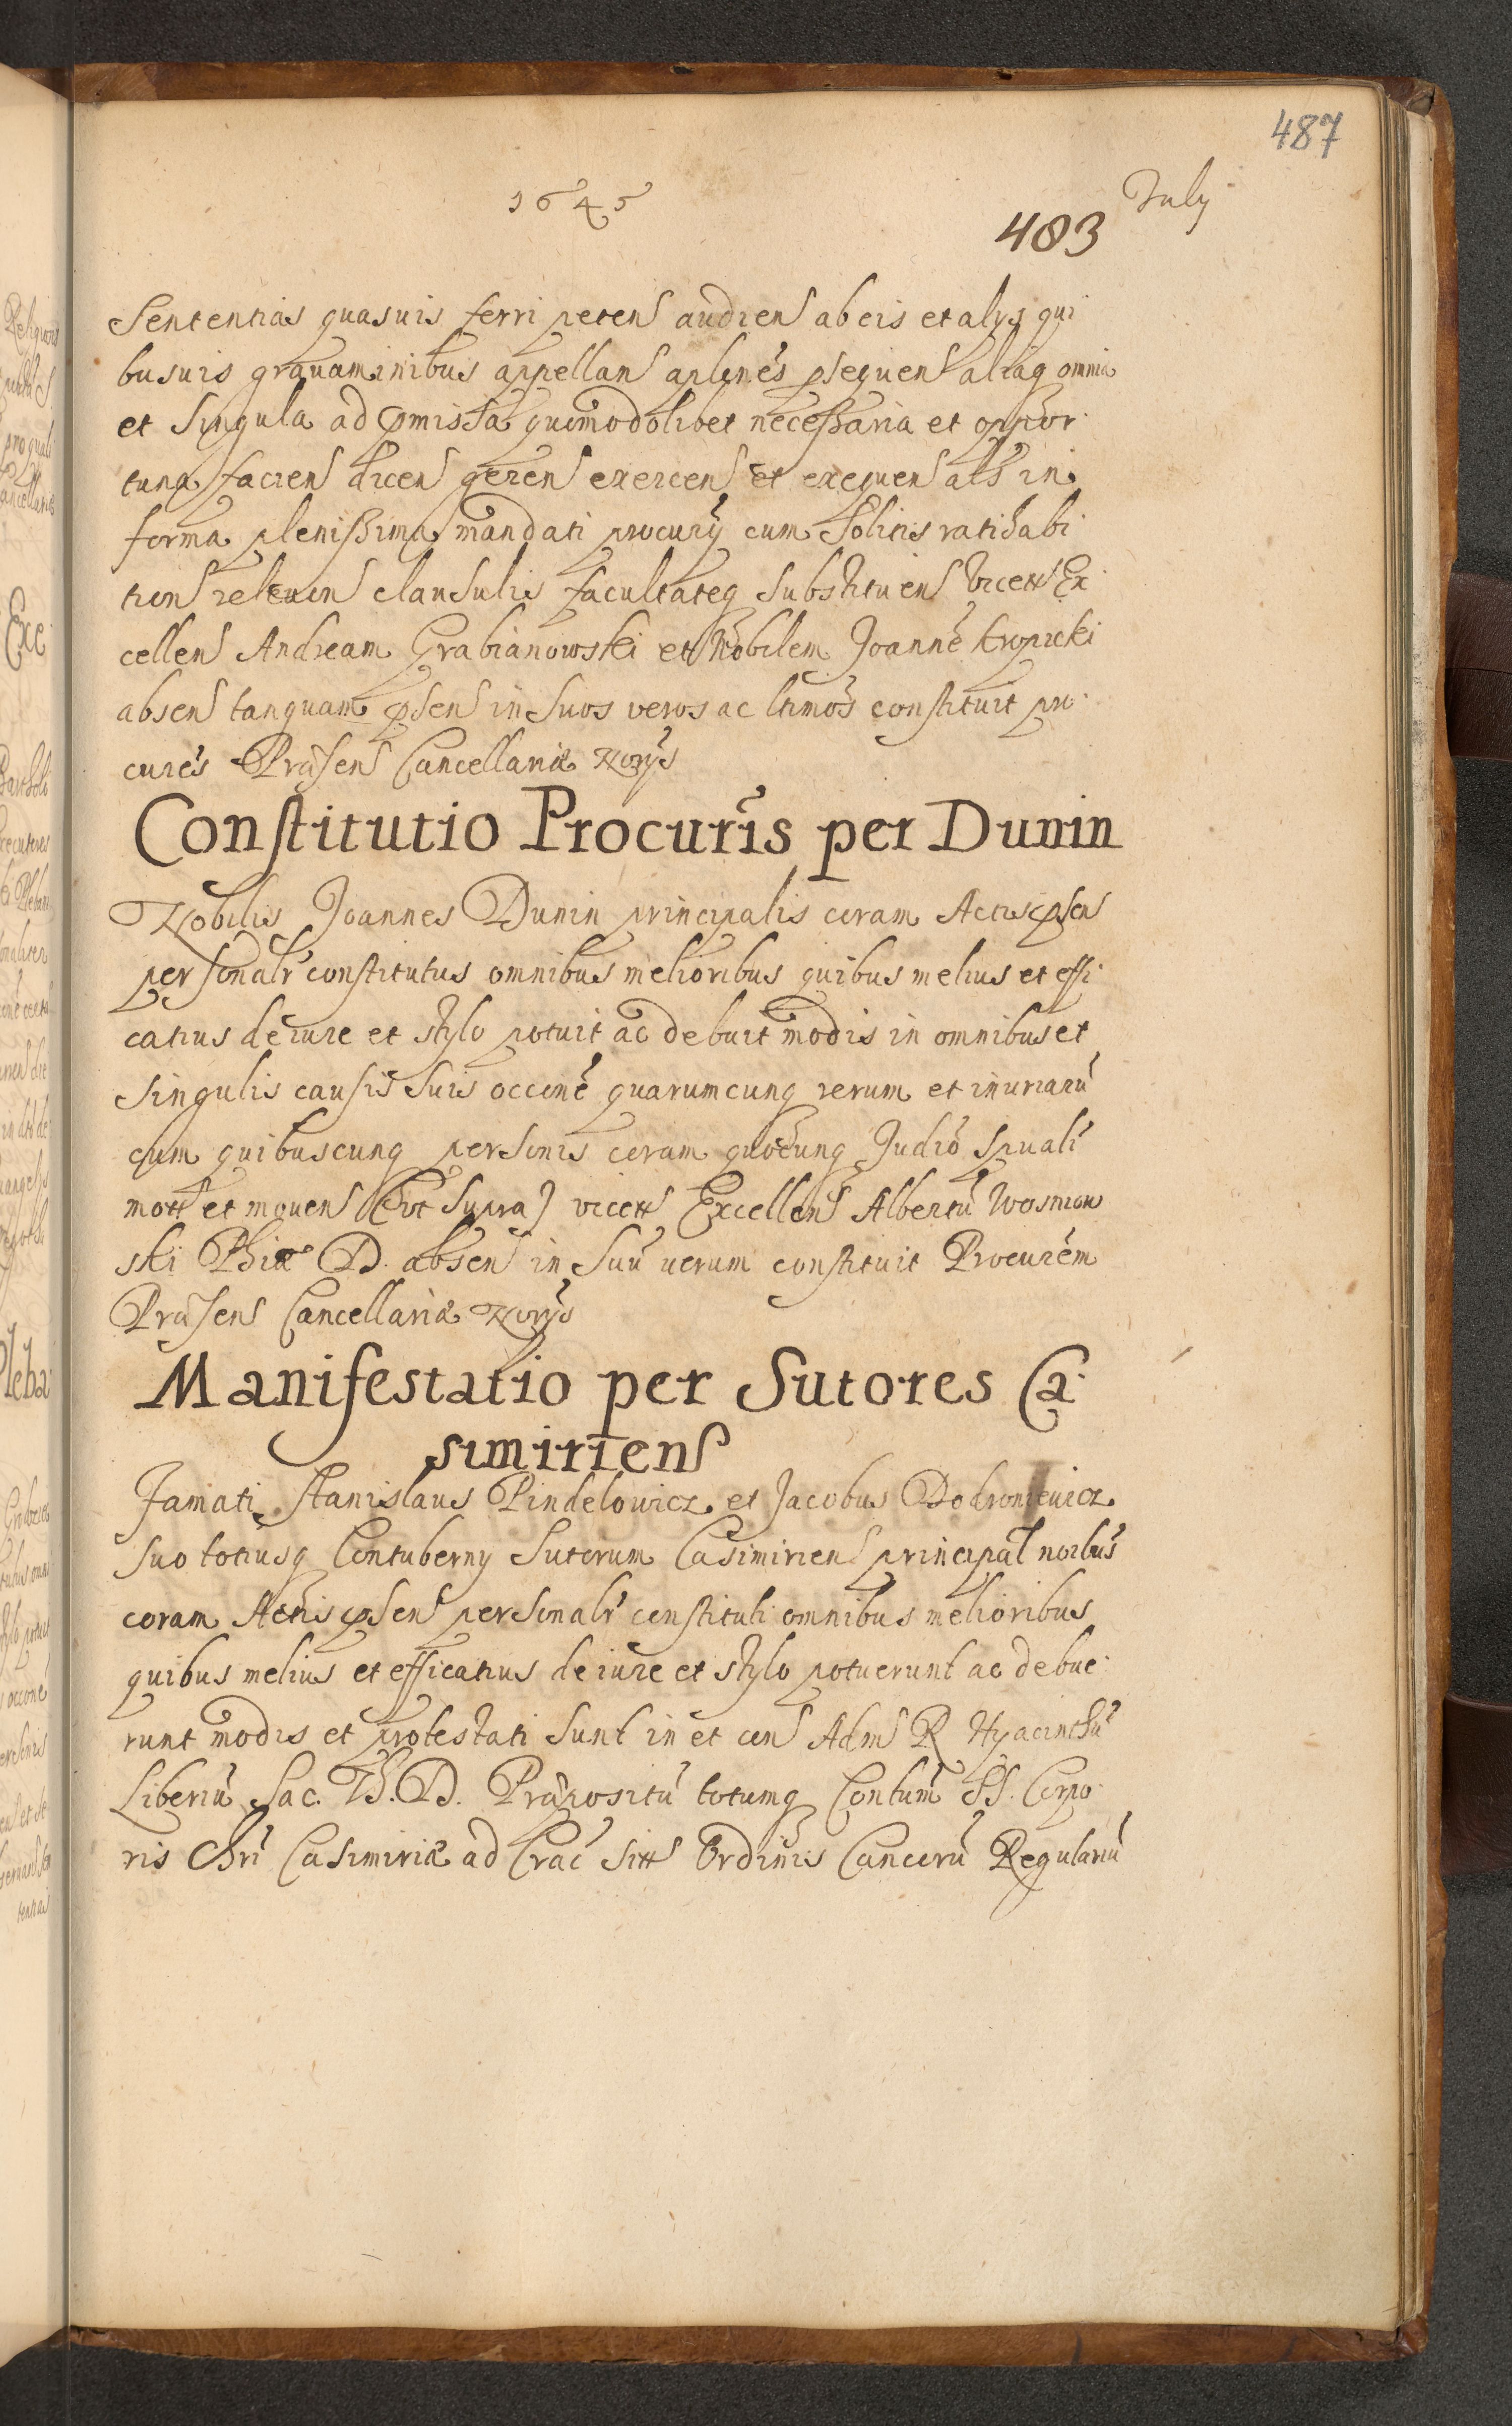 487
1645
July
483
Sententias quasuis ferri peten audien ab eis et alys qui
busuis grauaminibus appellan aplnes psequen aliaq omnia
et Singula ad pmissa quomodolibet necessaria et oppor
tuna facien dicen geren exercen et exequen als in
forma plenissima mandati procury cum Solitis ratihabi
tion releuon clausulis facultateq Substituen Ex
cellen Andream Grabianowski et Nobilem Joanne Kropicki
absen tanquam psen in Suos veros ac ltimos constituit pro
cures Præsen Cancellariæ
Constitutio Procuris per Dunin
Nobilis Joannes Dunin principalis coram Actis psen
personalr constitutus omnibus melioribus quibus melius et effi
catius de iure et stylo potuit ac debuit modis in omnibus et
Singulis causis Suis occone quarumcunq rerum et iniuriaru
cum quibuscunq personis coram quocunq Judio Spuali
mott et mouen (ut Supra) Excellen Albertu Wosniow
ski Phiæ D. absen in Suu verum constituit Procurem
Præsen Cancellariæ
Manifestatio per Sutores Ca
simirien
Famati Stanislaus Pindelowicz et Jacobus
Suo totiusq Contuberny Sutorum Casimirien principal noibus
coram Actis psen personalr constituti omnibus melioribus
quibus melius et efficatius de iure et stylo potuerunt ac debue
runt modis et protestati Sunt in et con Adm R Hyacinthu
Liberiu Sac. Th. D. Præpositu totumq Contum SS. Corpo
ris Chri Casimiriæ ad Crac sitt Ordinis Cancoru Regulariu